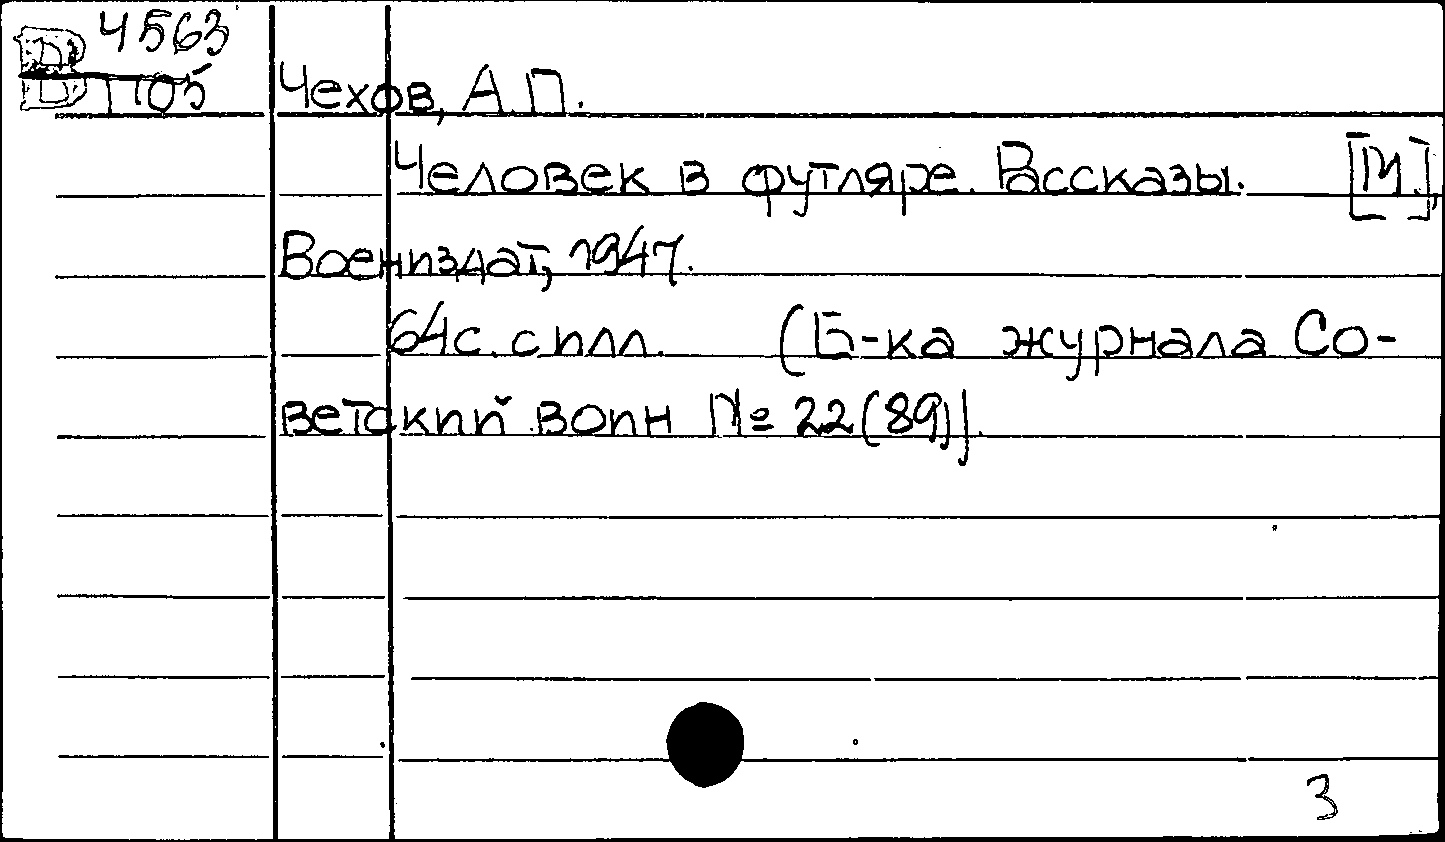 В 4563
В 1105
Чехов, А.П.
Человек в футляре. Рассказы. [М.],
Воениздат, 1947.
64с. с илл. (Б-ка журнала Со-
ветский воин № 22(89)).
3